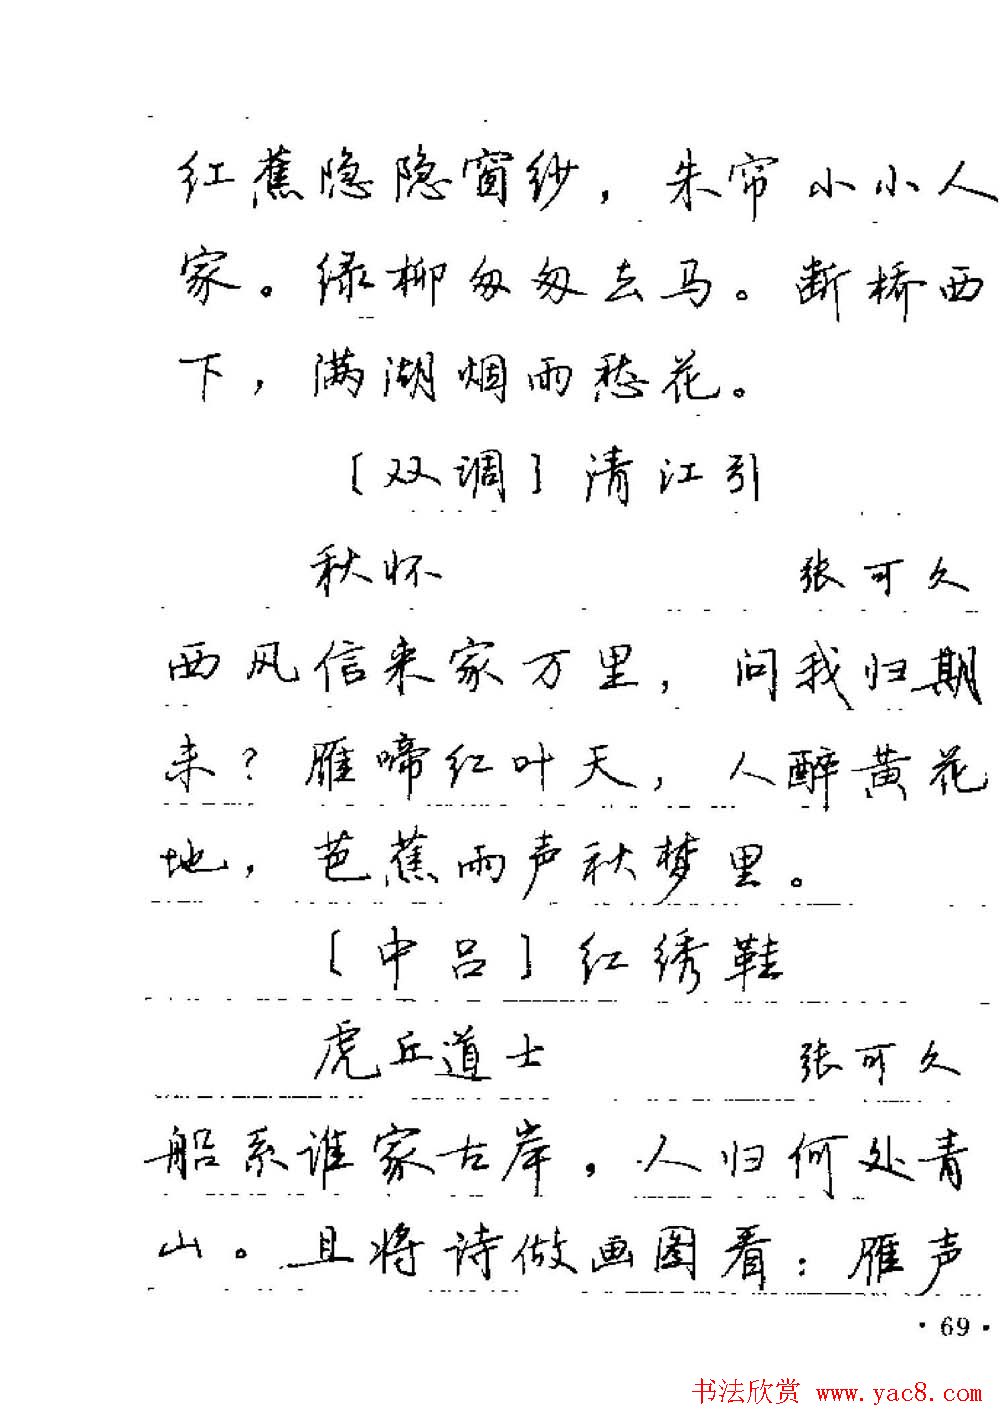 红蕉隐隐窗纱，朱帘小小人
家。绿柳匆匆去马。断桥西
下，满湖烟雨愁花。
［双调］清江引
秋怀 张可久
西风信来家万里，问我归期
未？雁啼红叶天，人醉黄花
地，芭蕉雨声秋梦里。
［中吕］红绣鞋
虎丘道士 张可久
船系谁家古岸，人归何处青
山。且将诗做画图看：雁声
·69·
书法欣赏 www.yac8.com